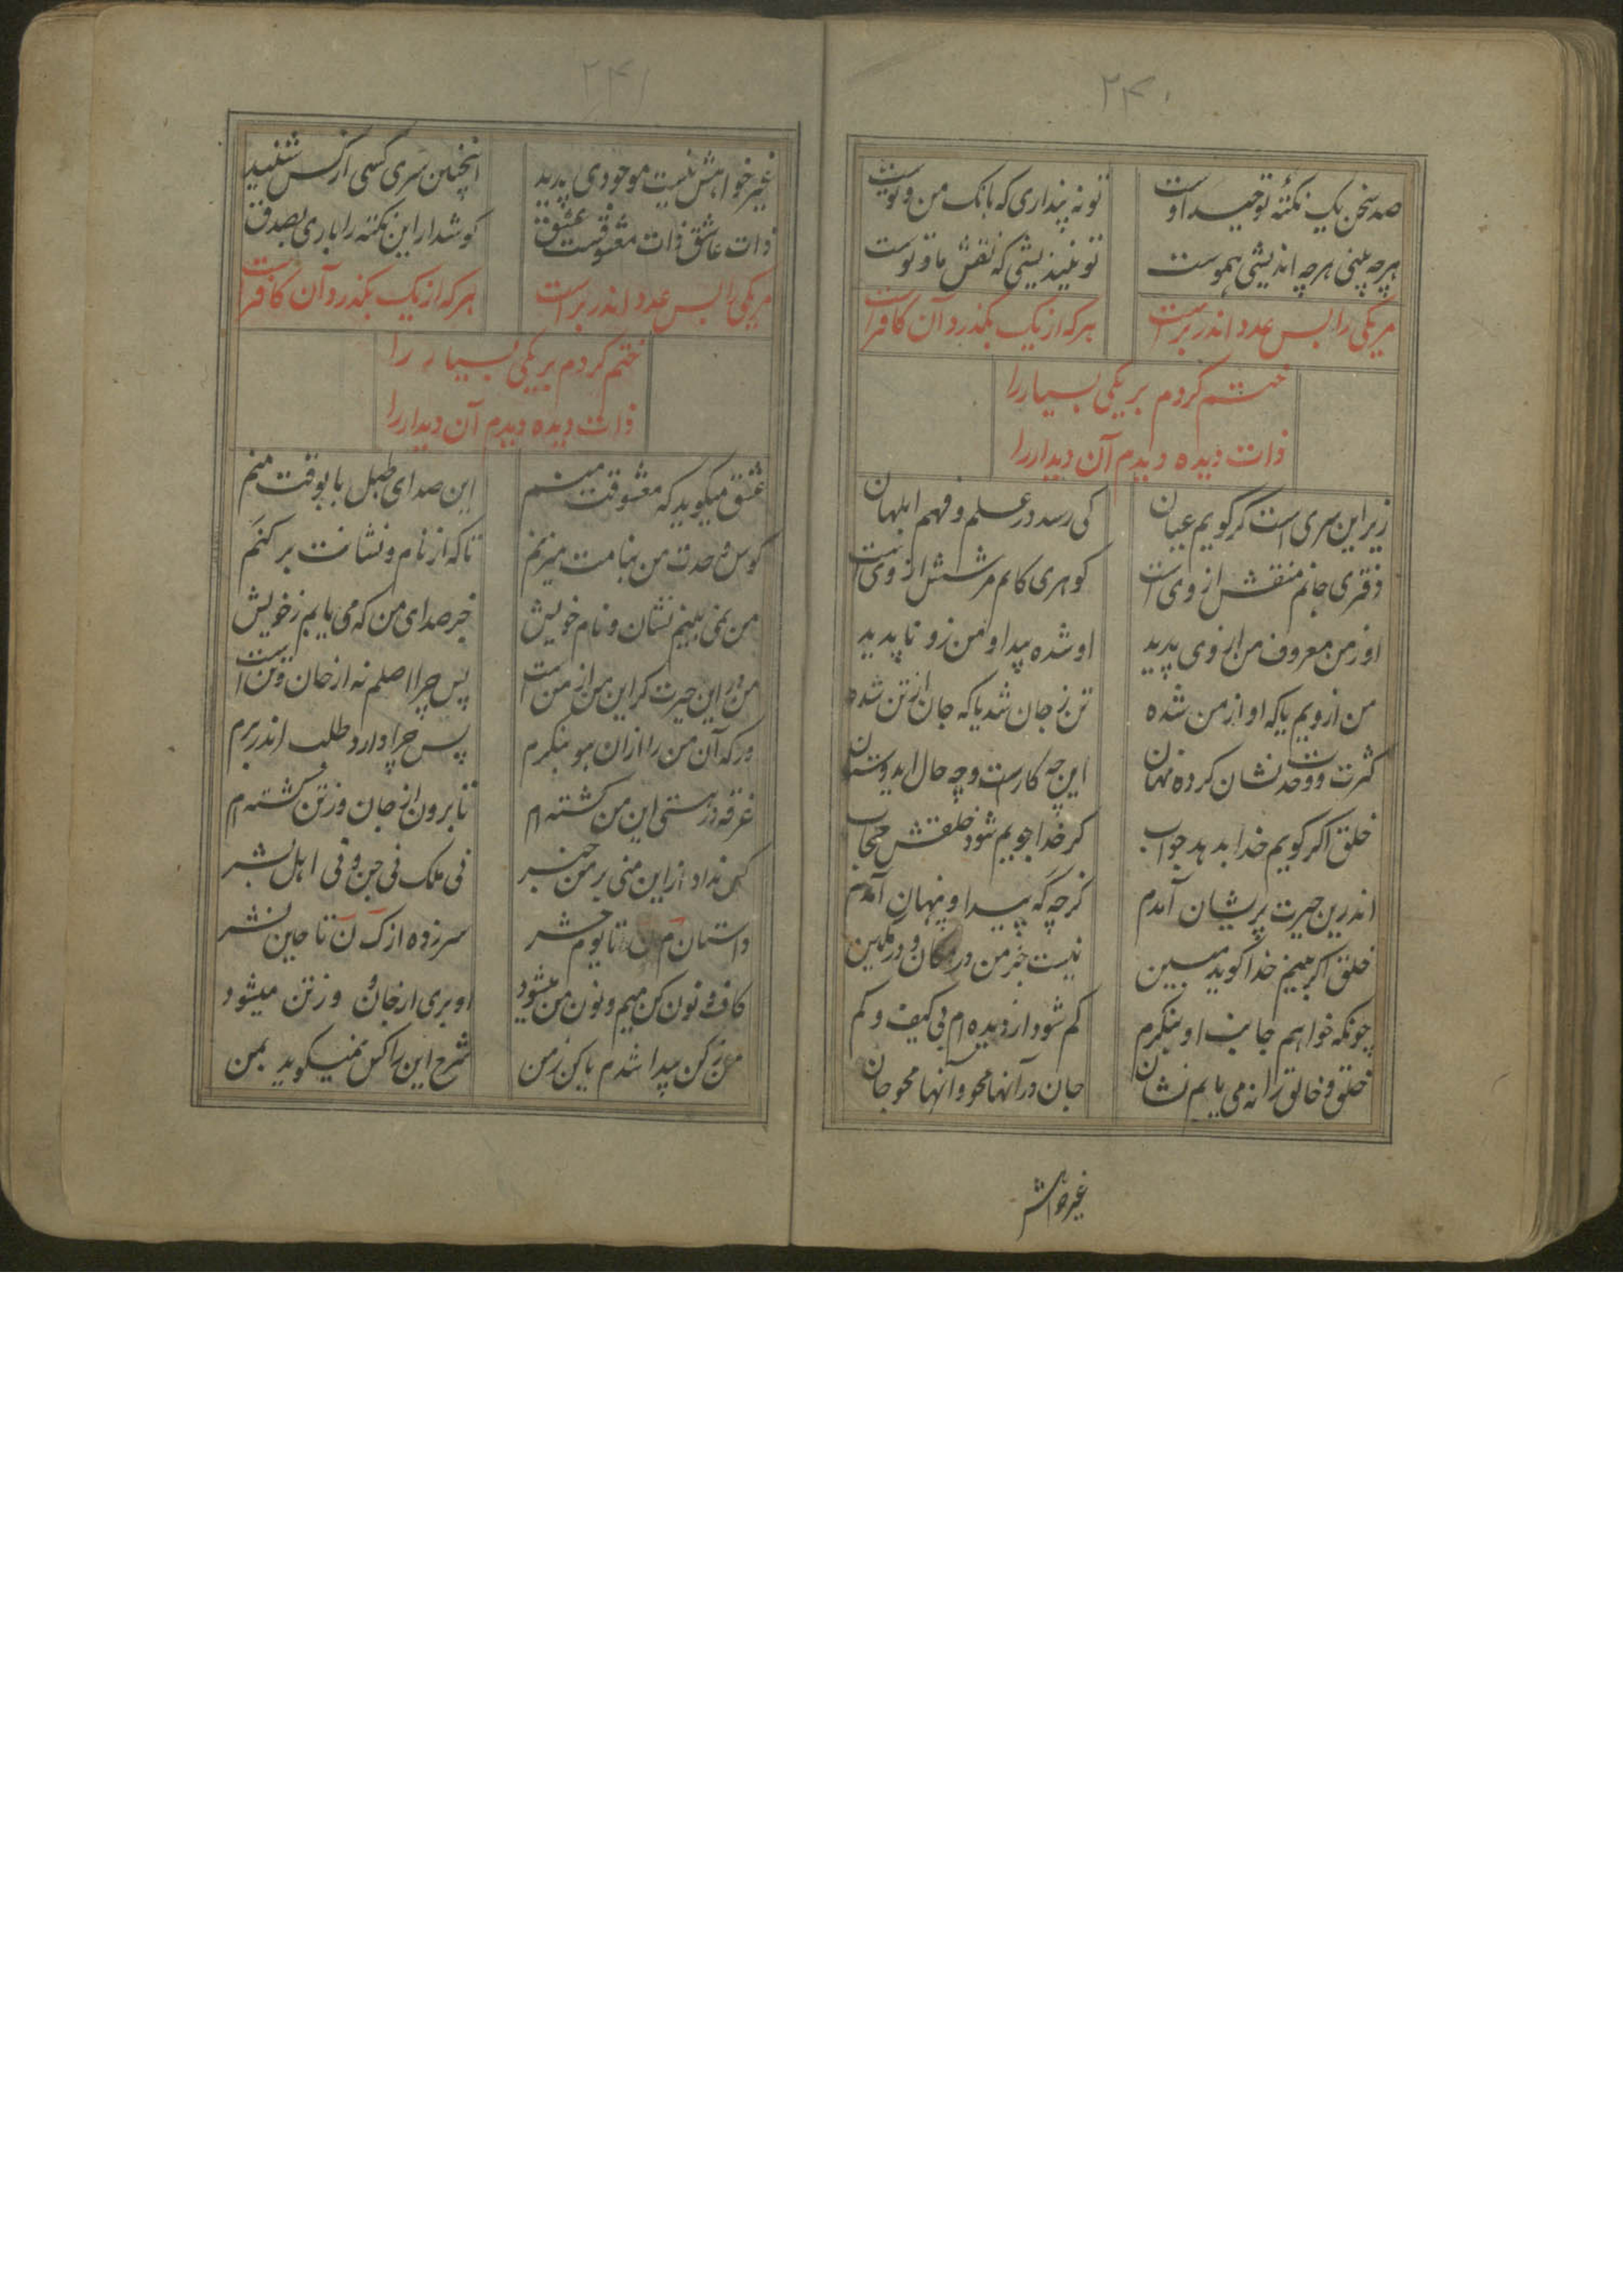 ۲۴۰
صد سخن یک نکتهٔ توحید اوست تو نه پنداری که بانک من و توست
هرچه بینی هرچه اندیشی هموست تو نیندیشی که نقش ما و توست
مر یکی را بس عدد اندر برست هرکه از یک بکذرد آن کافر است
ختم کردم بر یکی بسیار را
ذات دیده دیدم آن دیدار را
زیر این سری است کر کویم عیان کی رسد در علم و فهم ابلهان
دفتری جانم منقش از وی است کوهری کانم مرشش از وی است
او ز من معروف من از وی پدید او شده پیدا و من زو ناپدید
من ازویم یا که او از من شده تن ز جان شد یا که جان از تن شده
کثرت و وحدت نشان کرده نهان این چه کارست و چه حال ای دوستان
خلق اکر کویم خدا بدهد جواب کر خدا جویم شود خلقش حجاب
اندرین حیرت پریشان آمدم کرچه که پیدا و پنهان آمدم
خلق اکر بینم خدا کوید مبین نیست جز من در مکان و در مکین
چونکه خواهم جانب او بنکرم کم شود از دیده ام بی کیف و کم
خلق و خالق را نه می یابم نشان جان در آنها محو و آنها محو جان
غیر خواهش
۲۴۱
غیر خواهش نیست موجودی پدید اینچنین سری کسی از کس شنید
ذات عاشق ذات معشوقست عشق کوشدار این نکته را باری بصدق
مر یکی را بس عدد اندر بر است هرکه از یک بکذرد آن کافر است
ختم کردم بر یکی بسیار را
ذات دیده دیدم آن دیدار را
عشق میکوید که معشوقت منم این صدای طبل با بوقت منم
کوس وحدت من بنامت میزنم تا که از نام و نشانت بر کنم
من نمی بینم نشان و نام خویش جز صدای من که می یابم ز خویش
من در این حیرت کر این من از من است پس چرا اصلم نه از جان و تن است
ورکه آن من را از آن هو بنکرم پس چرا دارد طلب اندر برم
غرقه در هستی این من کشته ام تا برون از جان و ز تن کشته ام
کس نداد از این منی بر من خبر نی ملک نی جن و نی اهل بشر
داستان م ن تا یوم حشر سر زده از ک ن تا حین نشر
کاف و نون کن میم و نون من میشود او بری از جان و وز تن میشود
من ز کن پیدا شدم یا کن ز من شرح این را کس نمیکوید بمن